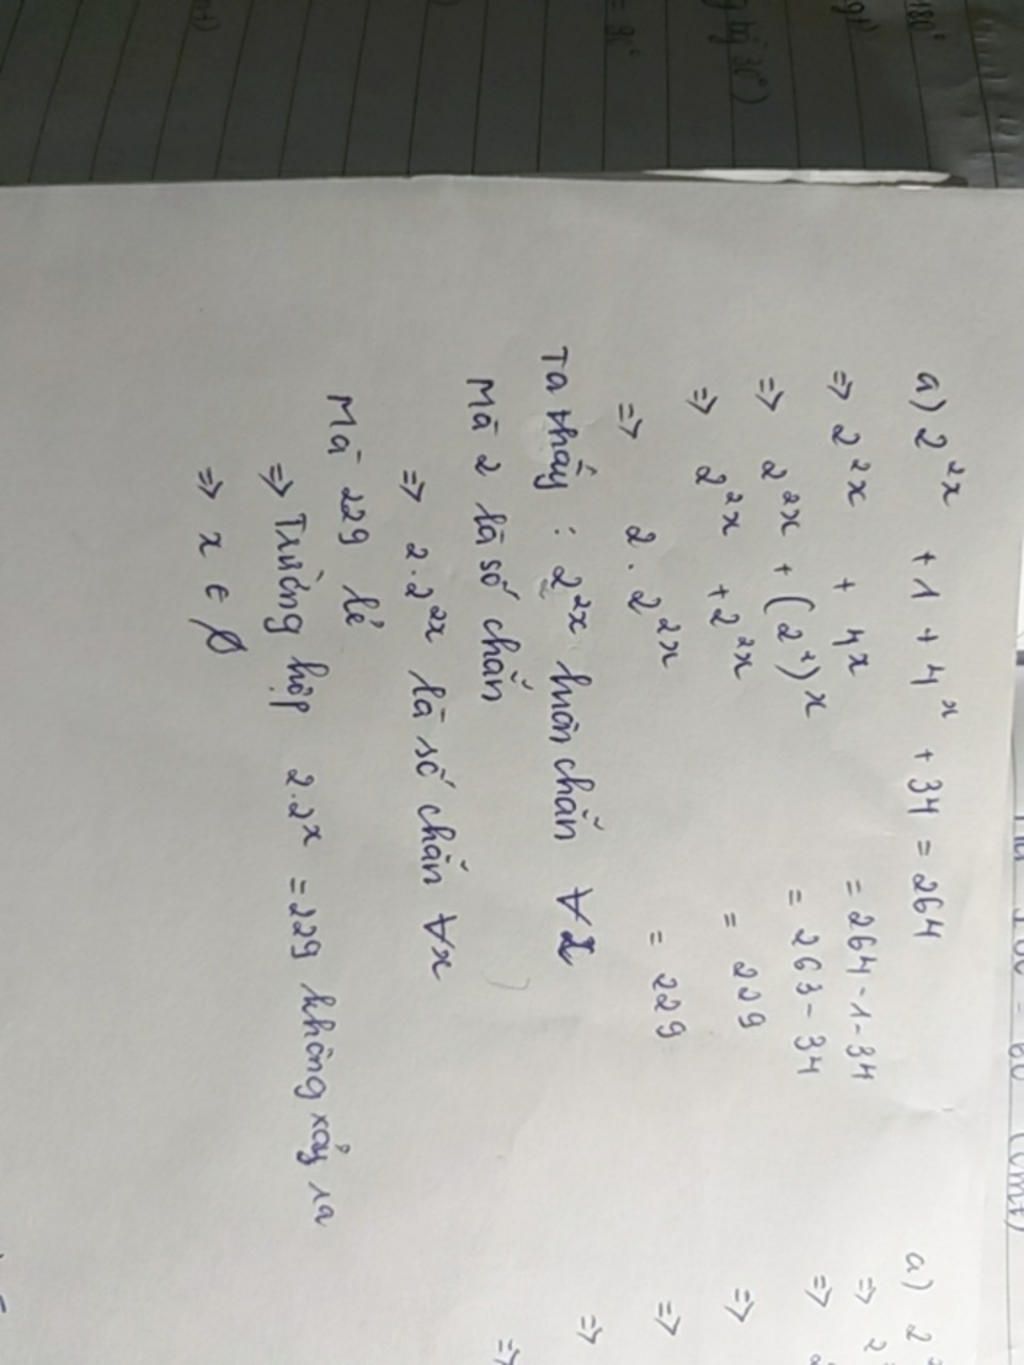 a) 2^2x + 1 + 4^x + 34 = 264
=> 2^2x + 4^x = 264 - 1 - 34
=> 2^2x + (2^2)^x = 263 - 34
=> 2^2x + 2^2x = 229
=> 2 . 2^2x = 229
Ta thấy : 2^2x luôn chẵn ∀x
Mà 2 là số chẵn
=> 2.2^2x là số chẵn ∀x
Mà 229 lẻ
=> Trường hợp 2.2^x = 229 không xảy ra
=> x ∈ ∅
a) 2
=> 2
=>
=>
=>
=>
=>
180°
= 96°